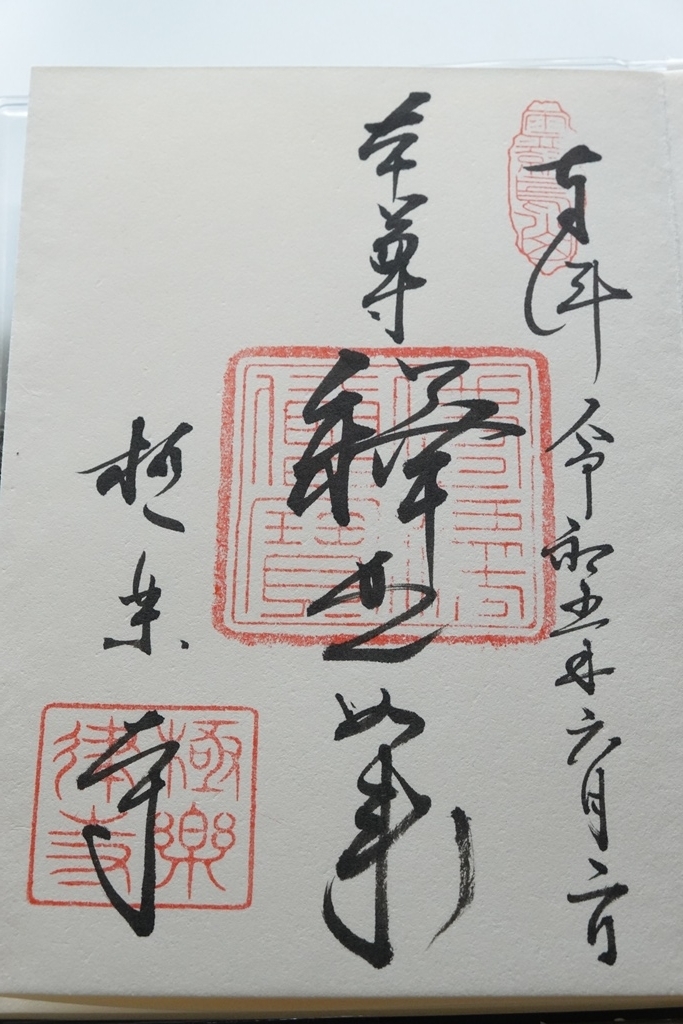 奉拝 令和五年六月二日
本尊 釋迦如来
極楽寺
極樂律寺